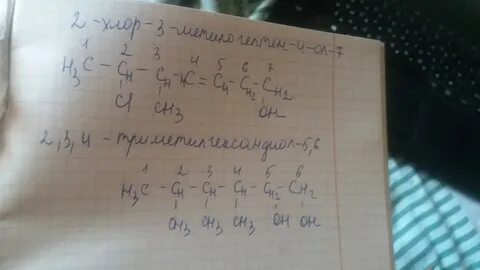 2-хлор-3-метилгептен-4-ол-7
1 2 3 4 5 6 7
H₃C - CH - CH - HC = CH - CH₂ - CH₂
Cl CH₃ OH
2,3,4 - триметилгександиол-5,6
1 2 3 4 5 6
H₃C - CH - CH - CH - CH₂ - CH₂
CH₃ CH₃ CH₃ OH OH